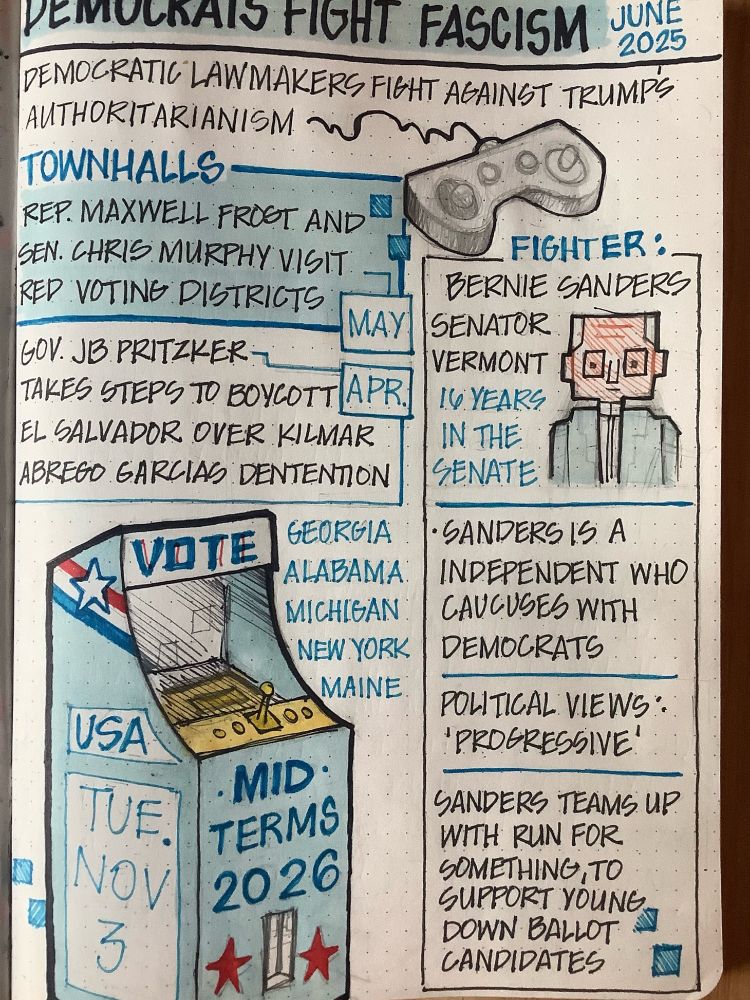 DEMOCRATS FIGHT FASCISM
JUNE
2025
DEMOCRATIC LAWMAKERS FIGHT AGAINST TRUMP'S
AUTHORITARIANISM
TOWNHALLS
REP. MAXWELL FROST AND
SEN. CHRIS MURPHY VISIT
RED VOTING DISTRICTS
MAY
GOV. JB PRITZKER
TAKES STEPS TO BOYCOTT
APR.
EL SALVADOR OVER KILMAR
ABREGO GARCIAS DENTENTION
VOTE
GEORGIA
ALABAMA
MICHIGAN
NEW YORK
MAINE
USA
TUE.
NOV
3
·MID·
TERMS
2026
FIGHTER:
BERNIE SANDERS
SENATOR
VERMONT
16 YEARS
IN THE
SENATE
·SANDERS IS A
INDEPENDENT WHO
CAUCUSES WITH
DEMOCRATS
POLITICAL VIEWS:
'PROGRESSIVE'
SANDERS TEAMS UP
WITH RUN FOR
SOMETHING, TO
SUPPORT YOUNG
DOWN BALLOT
CANDIDATES